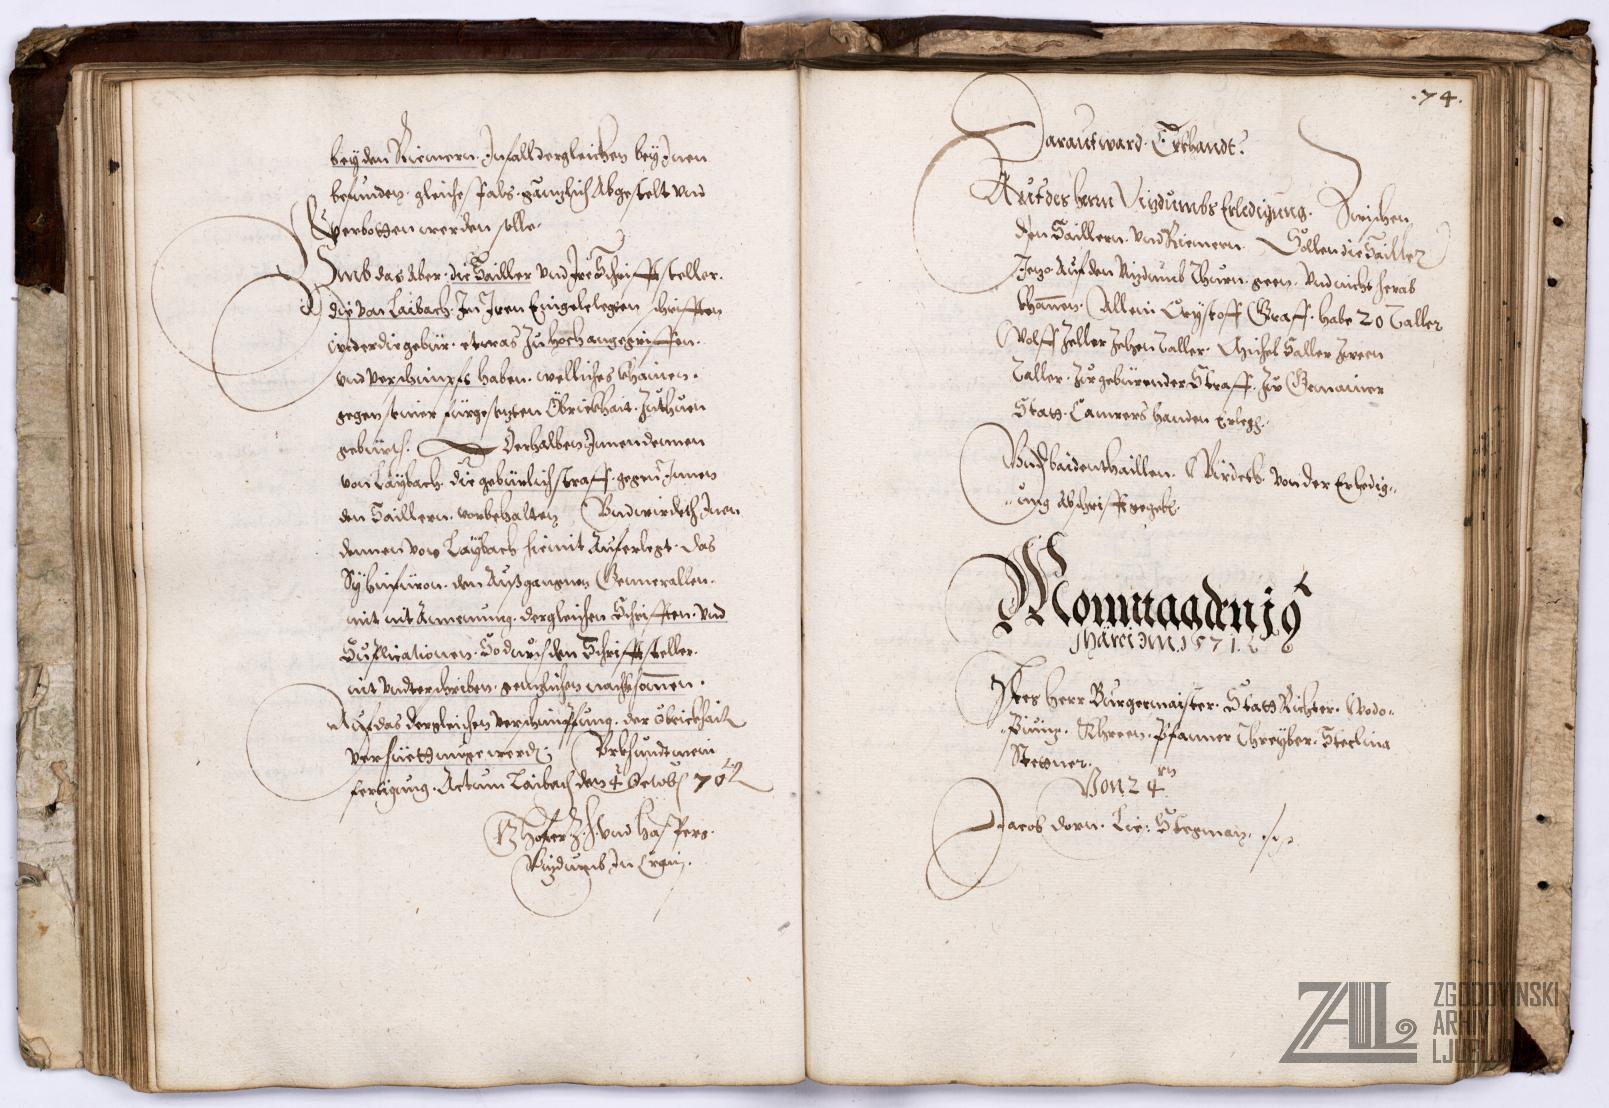 bey den Riemern. Infall dergleichen bey Inen
befunden. gleichesfals. gänzlich Abgestelt und
verbotten werden solle.
Umb das Aber. die Sailler und Ire Schrifftsteller.
die von Laibach. In Iren Eingelelegten schrifften
wider die gebür. etwas zu hoch angegriffen.
und verschimpfft haben. welliches khainem.
gegen seiner fürgesetzten Obrickhait. zuthuen
gebürt. Derhalben Innen dennen
von Laybach. die gebürlich straff. gegen Innen
den Saillern. vorbehalten Und wirdeth Inen
dennen von Laybach hiemit Auferlegt. das
Sy hinfüron. den Außgangnen Gennerallen.
mit nit Annemung. dergleichen Schrifften. und
Supplicationen. So durch den Schrifftsteller.
nit underschriben. genzlichen nachkhomen.
Auf das dergleichen verschimpffung. der obrickhait
verhüett müge werden Urkhundt mein
fertigung. Actum Laibach den 4 Octob 70
Vizdumb In Crain.
.74.
Darauf ward. Erkhandt.
Auf des herrn Vizdumbs Erledigung. Zwischen
den Saillern. und Riemern. Sollen die Sailler
Jezo Auf den Vizdumb Thurn. geen. und nicht herab
khomen. Allein Cristoff Graff. habe 20 Taller
Wolff Zeller Zehen Taller. Michel Saller Zween
Taller. Zu gebürender Straff. Zu Gemainer
Statt. Camrers handen Erlegt.
Und baiden thaillen. Wirdeth von der Erledig-
ung Abschrifft gegeben.
Monntag den 19
Marci Im 1571.
Herr Burgermaister. Statt Richter. Wodo-
piuiz. Khreen. Pfanner Threyber. Stettner.
Von 24
Jacob dorn. Stegman.
ZAL
ZGODOVINSKI
ARHIV